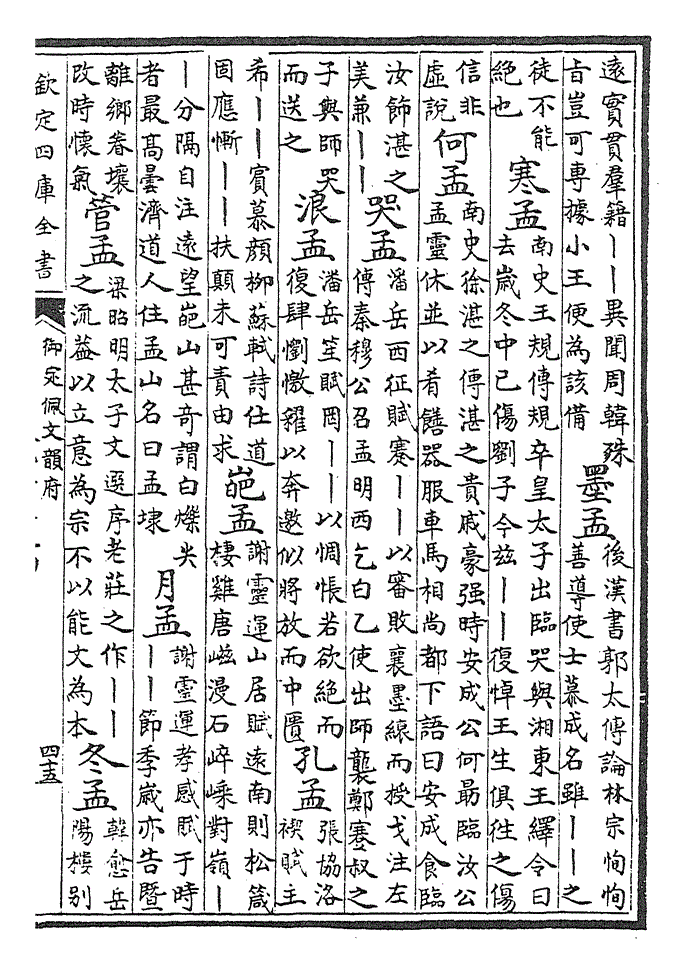 遠實貫羣籍丨丨異聞周韓殊
旨豈可專據小王便為該備
墨孟
後漢書郭太傳論林宗恂恂
善導使士慕成名雖丨丨之
徒不能
絕也
寒孟
南史王規傳規卒皇太子出臨哭與湘東王繹令曰
去歲冬中已傷劉子今兹丨丨復悼王生俱徃之傷
信非
虛說
何孟
南史徐湛之傳湛之貴戚豪强時安成公何勗臨汝公
孟靈休並以肴饍器服車馬相尚都下語曰安成食臨
汝飾湛之
美兼丨丨
哭孟
潘岳西征賦蹇丨丨以審敗襄墨縗而授戈注左
傳秦穆公召孟明西乞白乙使出師襲鄭蹇叔之
子與師哭
而送之
浪孟
潘岳笙賦罔丨丨以惆悵若欲絕而
復肆懰檄糴以奔邀似將放而中匱
孔孟
張協洛
禊賦主
希丨丨賓慕顔柳蘇軾詩仕道
固應慚丨丨扶顛未可責由求
孟
謝靈運山居賦遠南則松箴
棲雞唐嵫漫石崪嵊對嶺丨
丨分隔自注遠望山甚奇謂白爍尖
者最高曇濟道人住孟山名曰孟埭
月孟
謝靈運孝感賦于時
丨丨節季歲亦告暨
離鄉眷壤
改時懷氣
管孟
梁昭明太子文選序老莊之作丨丨
之流葢以立意為宗不以能文為本
冬孟
韓愈岳
陽樓別
欽定四庫全書
御定佩文韻府
四十五